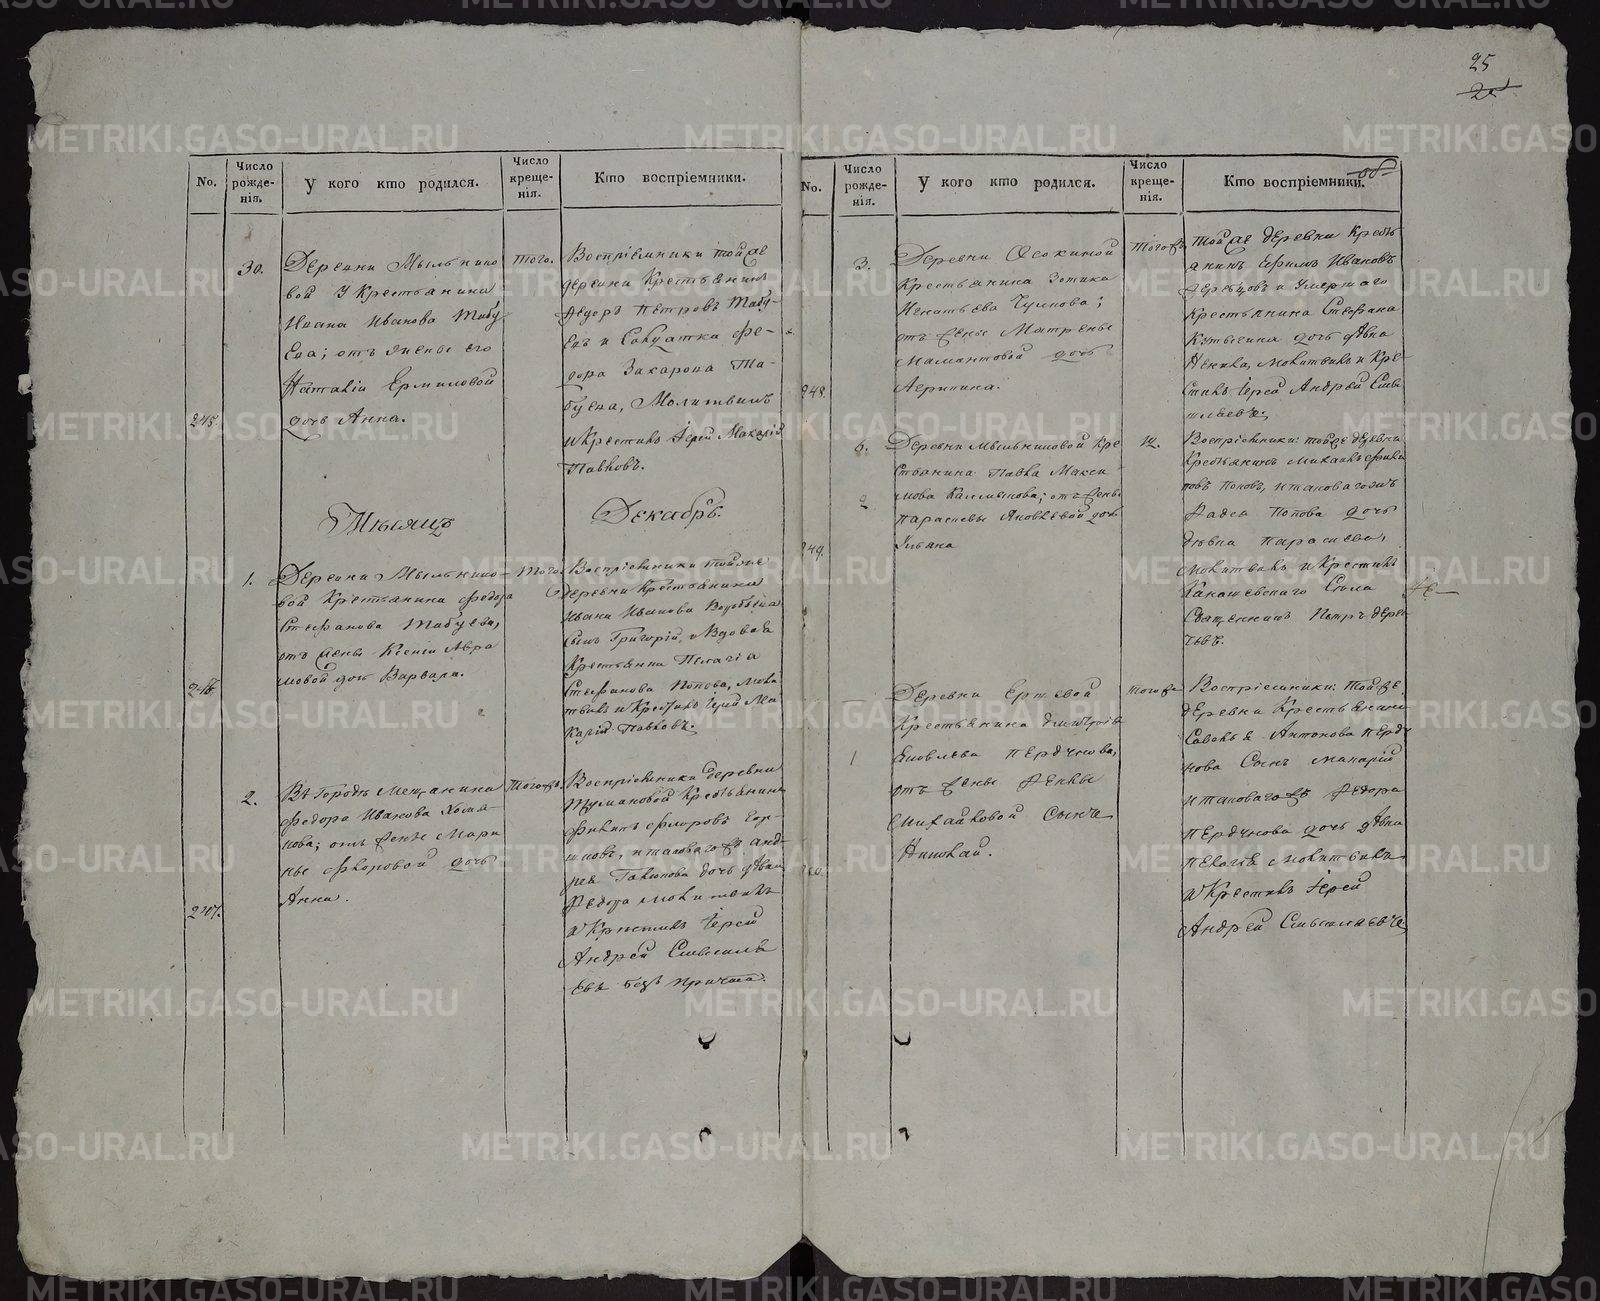 25
No.
Число рожде-нія.
У кого кто родился.
Число креще-нія.
Кто воспріемники.
245.
30.
Деревни Мыльнико
вой у Крестьянина
Ивана Иванова Табу
ева; отъ жены его
Наталіи Ермиловой
дочь Анна.
Того.
Воспріемники той же
деревни Крестьянинъ
Федоръ Петровъ Табу-
евъ и Солдатка Фе-
дора Захарова Та-
буева, Молитвилъ
и Крестилъ Іерей Макарій
Павловъ.
Мѣсяцъ
Декабрь.
246.
1.
Деревни Мыльнико-
вой Крестьянина Федора
Стефанова Табуева,
отъ жены Ксеніи Авра
мовой дочь Варвара.
Того.
Воспріемники той же
деревни Крестьянина
Ивана Иванова Воробьева
сынъ Григорій, и Вдовая
Крестьянка Пелагіа
Стефанова Попова, Моли
твилъ и Крестилъ Іерей Ма
карій Павловъ.
247.
2.
Въ Городѣ Мещанина
Федора Иванова
отъ жены Мари
ны Флоровой дочь
Анна.
Того же.
Воспріемники деревни
Тумановой Крестьянинъ
Филипъ Флоровъ
и таковаго же Анд-
рея дочь дѣвка
Федора молитвилъ
и Крестилъ Іерей
Андрей Смышля
евъ безъ причта.
No.
Число рожде-нія.
У кого кто родился.
Число креще-нія.
Кто воспріемники.
248.
3.
Деревни Осокиной
Крестьянина Зотика
Игнатьева Чулкова;
отъ жены Матрены
Мамантовой дочь
Того же
той же деревни Кресть
янинъ Ефимъ Ивановъ
и умершаго
Крестьянина Стефана
дочь дѣвка
молитвилъ и Кре-
стилъ Іерей Андрей Смы
шляевъ.
249.
6.
2
Деревни Мыльниковой Кре
стьянина Павла Макси
мова Калмыкова; отъ жены
Параскевы Яковлевой дочь
Ульяна
12.
Воспріемники: той же деревни
Крестьянинъ Михаилъ Филип
повъ Поповъ, и таковаго жъ
Фадея Попова дочь
дѣвка Параскева,
молитвилъ и Крестилъ
Канашевскаго Села
Священникъ Петръ
1
Деревни Ершевой
Крестьянина Димитрія
Яковлева Пердунова,
отъ жены Феклы
Михайловой сынъ
Николай.
Того же
Воспріемники: той же
деревни Крестьянина
Савелья Антонова Перду
нова сынъ Макарій
и таковаго жъ Федора
Пердунова дочь дѣвка
Пелагія молитвилъ
и Крестилъ Іерей
Андрей Смышляевъ
METRIKI.GASO-URAL.RU